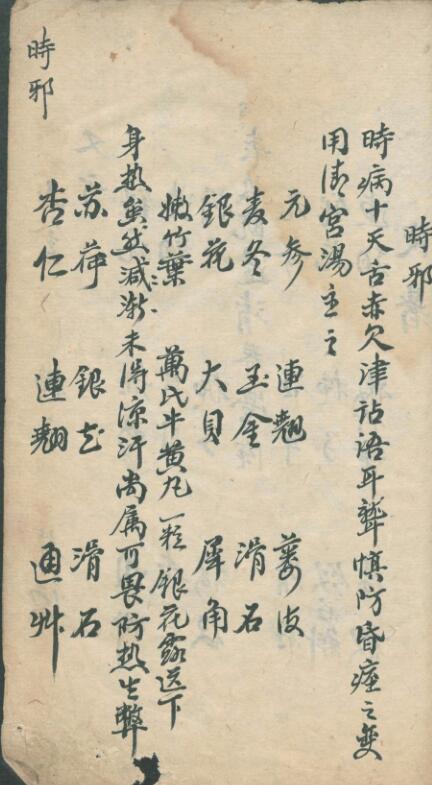 時邪
時病十天舌赤欠津詀語耳聾慎防昏痙之变
用清宮湯主之
元参 連翹 蔞皮
麦冬 玉金 滑石
銀花 大貝 犀角
嫩竹葉 萬氏牛黄丸一粒 銀花露送下
身热虽然減漸未得凉汗尚属可畏防热生弊
苏荷 銀花 滑石
杏仁 連翹 通艸
時邪